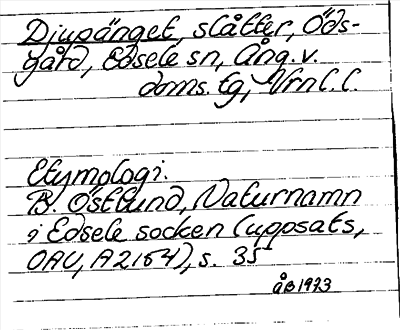 Djupänget, slåtter, Öds-
gård, Edsele sn, Ång. v.
doms. tg, Vrnl. l.
Etymologi.
B. Östlund, Naturnamn
i Edsele socken (uppsats,
OAU, A2164), s. 35
åB 1973